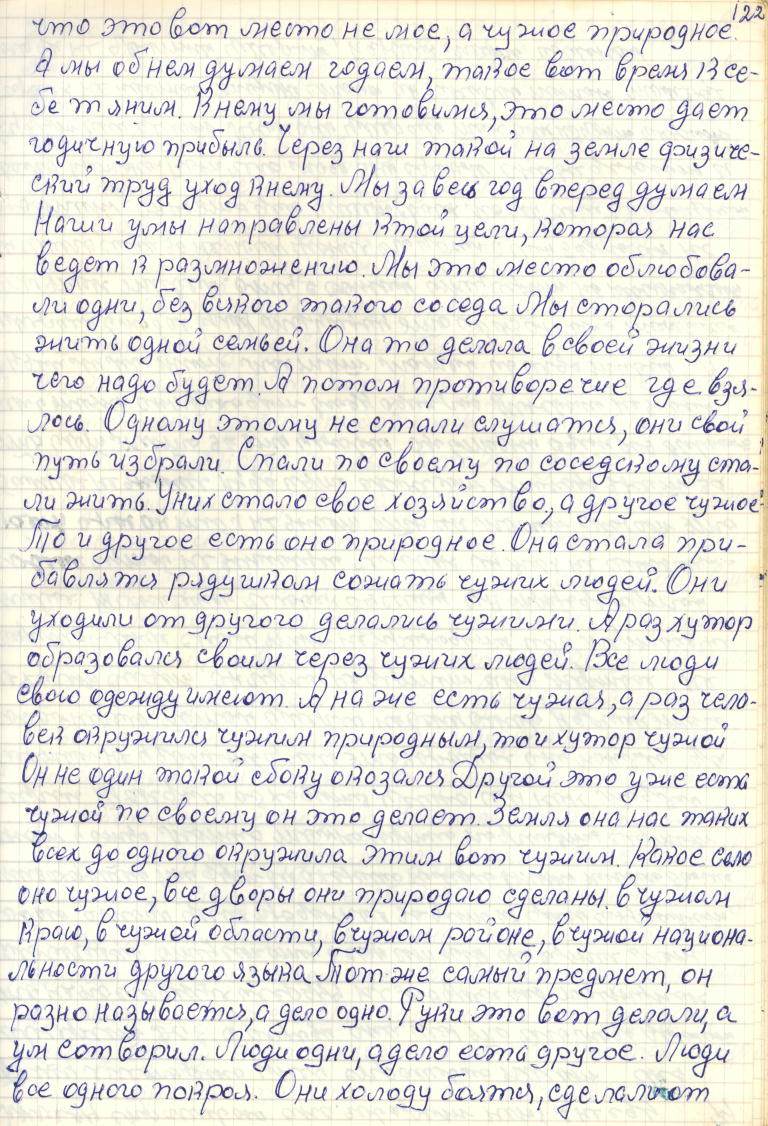 122
что это вот место не мое, а чужое природное.
А мы об нем думаем годаем, такое вот время к се-
бе тяним. К нему мы готовимся, это место дает
годичную прибыль. Через наш такой на земле физиче-
ский труд уход к нему. Мы за весь год вперед думаем
Наши умы направлены к той цели, которая нас
ведет к размножению. Мы это место облюбова-
ли одни, без всякого такого соседа Мы сторались
жить одной семьей. Она то делала в своей жизни
чего надо будет. А потом противоречие где взя-
лось. Одному этому не стали слушатся, они свой
путь избрали. Спали по своему по соседскому ста-
ли жить. У них стало свое хозяйство, а другое чужое
То и другое есть оно природное. Она стала при-
бавлятся рядушком сожать чужих людей. Они
уходили от другого делались чужими. А раз хутор
образовался своим через чужих людей. Все люди
свою одежду имеют. А на же есть чужая, а раз чело-
век окружился чужим природным, то и хутор чужой
Он не один такой сбоку оказался Другой это уже есть
чужой по своему он это делает. Земля она нас таких
всех до одного окружила этим вот чужим. Какое село
оно чужое, все дворы они природаю сделаны. в чужом
краю, в чужой области, в чужом районе, в чужой национа-
льности другого языка Тот же самый предмет, он
разно называется, а дело одно. Руки это вот делали, а
ум сотворил. Люди одни, а дело есть другое. Люди
все одного покроя. Они холоду боятся, сделали от